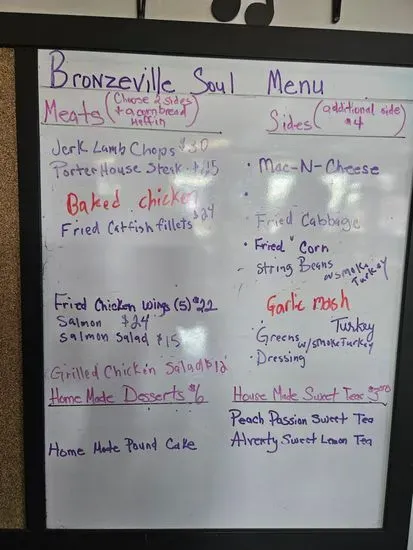 Bronzeville Soul Menu
Meats (Choose 2 sides
+ a cornbread
Muffin)
Jerk Lamb Chops $30
Porter House Steak
Baked chicken
Fried Catfish fillets $24
Fried Chicken Wings (5) $22
Salmon $24
Salmon Salad $15
Grilled Chicken Salad $12
Home Made Desserts $6
Home Made Pound Cake
Sides (additional side
$4)
• Mac-N-Cheese
Fried Cabbage
• Fried Corn
- String Beans w/smoke
Turkey
Garlic mash
• Greens w/smoke Turkey
Turkey
• Dressing
House Made Sweet Teas
Peach Passion Sweet Tea
Sweet Lemon Tea